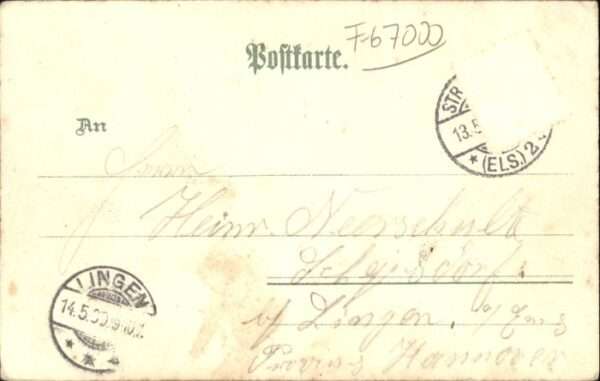 F-67000
Postkarte.
STR
13.5
* (ELS.) 2
An
Herrn
Heinr.
LINGEN
14.5.00
b/ Lingen, a/ Ems
Provinz Hannover